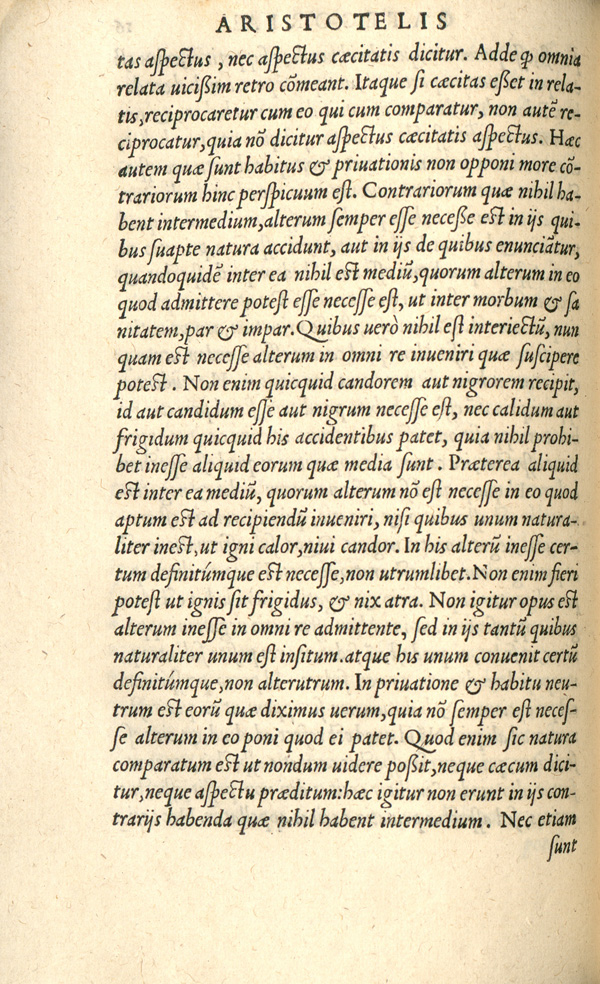 ARISTOTELIS
tas aſpectus, nec aſpectus cæcitatis dicitur. Adde ꝙ omnia
relata uicißim retro cōmeant. Itaque ſi cæcitas eßet in rela-
tis, reciprocaretur cum eo qui cum comparatur, non autē re-
ciprocatur, quia nō dicitur aſpectus cæcitatis aſpectus. Hæc
autem quæ ſunt habitus & priuationis non opponi more cō-
trariorum hinc perſpicuum eſt. Contrariorum quæ nihil ha-
bent intermedium, alterum ſemper eſſe neceße eſt in ijs qui-
bus ſuapte natura accidunt, aut in ijs de quibus enunciātur,
quandoquidē inter ea nihil eſt mediū, quorum alterum in eo
quod admittere poteſt eſſe neceſſe eſt, ut inter morbum & ſa
nitatem, par & impar. Quibus uerò nihil eſt interiectū, nun
quam eſt neceſſe alterum in omni re inueniri quæ ſuſcipere
poteſt. Non enim quicquid candorem aut nigrorem recipit,
id aut candidum eſſe aut nigrum neceſſe eſt, nec calidum aut
frigidum quicquid his accidentibus patet, quia nihil prohi-
bet ineſſe aliquid eorum quæ media ſunt. Præterea aliquid
eſt inter ea mediū, quorum alterum nō eſt neceſſe in eo quod
aptum eſt ad recipiendū inueniri, niſi quibus unum natura-
liter ineſt, ut igni calor, niui candor. In his alterū ineſſe cer-
tum definitúmque eſt neceſſe, non utrumlibet. Non enim fieri
poteſt ut ignis ſit frigidus, & nix atra. Non igitur opus eſt
alterum ineſſe in omni re admittente, ſed in ijs tantū quibus
naturaliter unum eſt inſitum. atque his unum conuenit certū
definitúmque, non alterutrum. In priuatione & habitu neu-
trum eſt eorū quæ diximus uerum, quia nō ſemper eſt neceſ-
ſe alterum in eo poni quod ei patet. Quod enim ſic natura
comparatum eſt ut nondum uidere poßit, neque cæcum dici-
tur, neque aſpectu præditum: hæc igitur non erunt in ijs con-
trarijs habenda quæ nihil habent intermedium. Nec etiam
ſunt